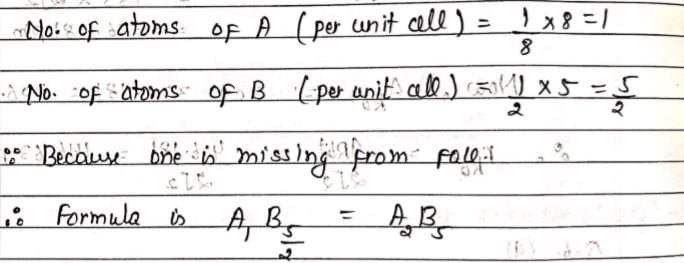 No. of atoms of A (per unit cell) = 1/8 x 8 = 1
No. of atoms of B (per unit cell.) = 1/2 x 5 = 5/2
∵ Because one is missing from face.
∴ Formula is A₁ B₅/₂ = A₂ B₅